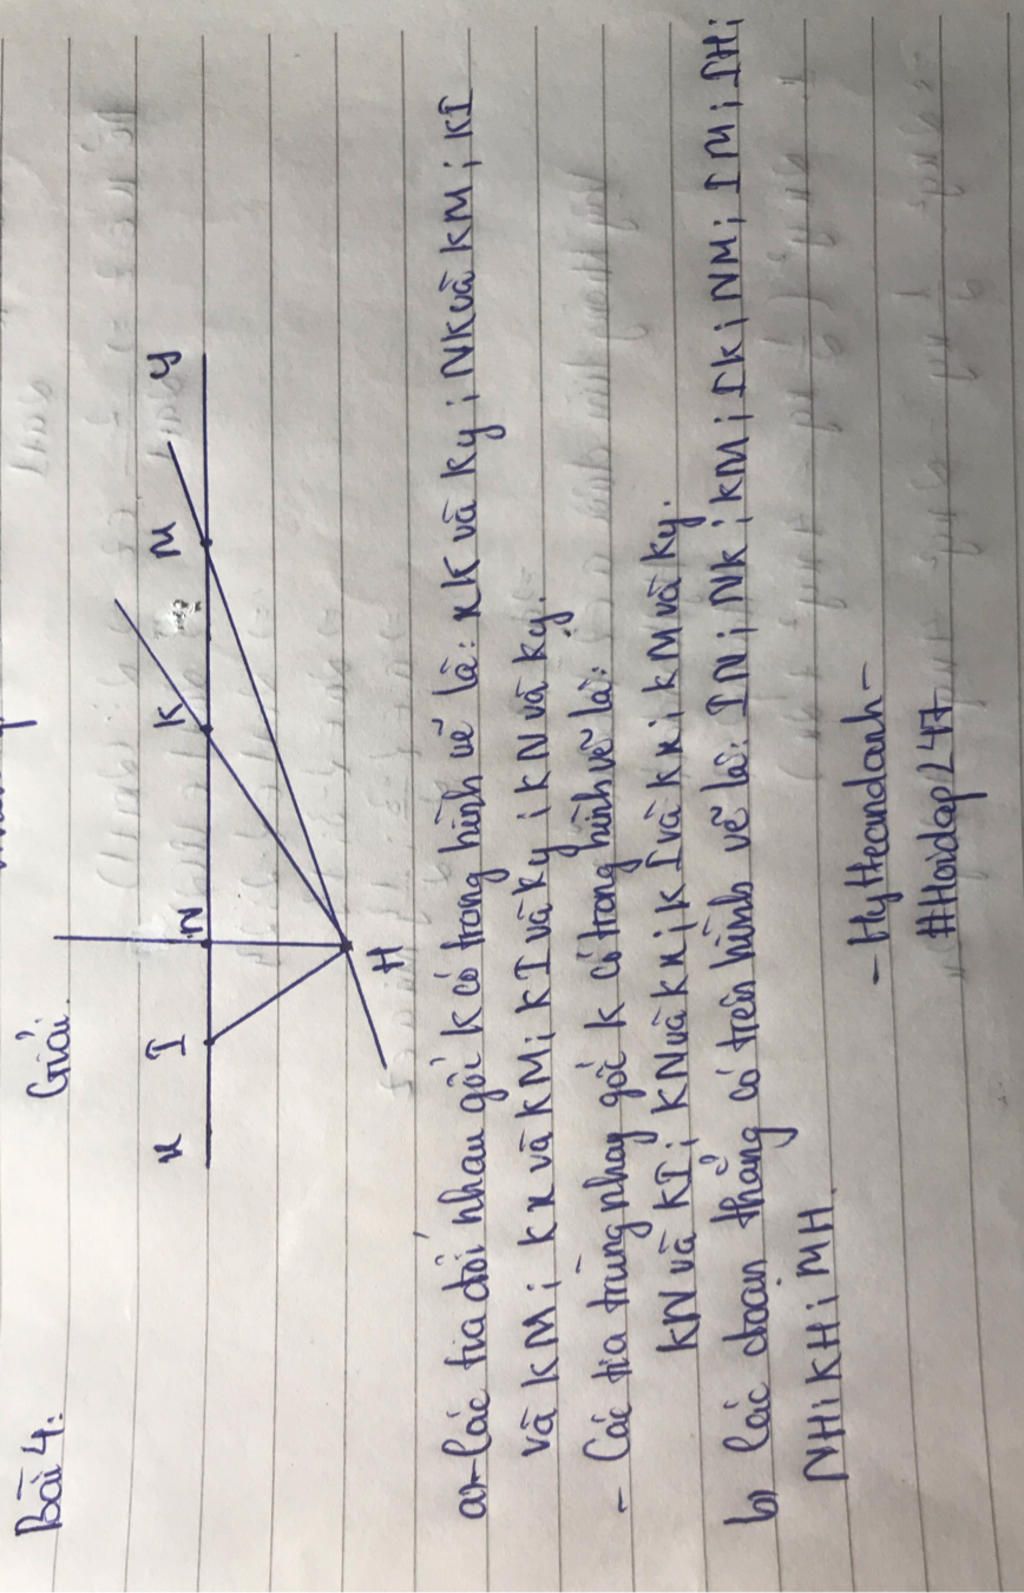 Bài 4:
Giải.
x I N K M y
H
a) - Các tia đối nhau gốc K có trong hình vẽ là: xK và Ky; NK và KM; KI
và KM; Kx và KM; KI và Ky; KN và Ky.
- Các tia trùng nhay gốc K có trong hình vẽ là:
KN và KI; KN và Kx; KI và Kx; KM và Ky.
b) Các đoạn thẳng có trên hình vẽ là: IN; NK; KM; IK; NM; IM; IH;
NH; KH; MH.
- HyTteandanh -
#Hoidap247